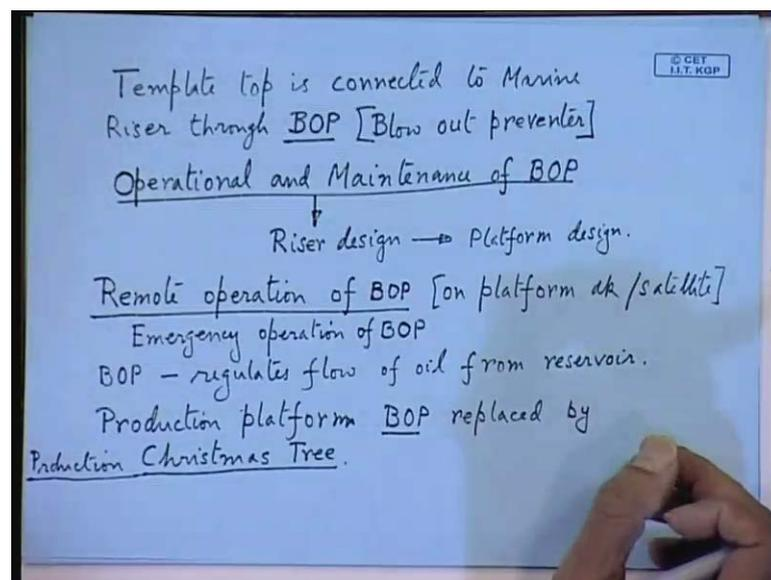 © CET
I.I.T. KGP
Template top is connected to Marine
Riser through BOP [Blow out preventer]
Operational and Maintenance of BOP
Riser design → Platform design.
Remote operation of BOP [on platform /satellite]
Emergency operation of BOP
BOP - regulates flow of oil from reservoir.
Production platform BOP replaced by
Production Christmas Tree.